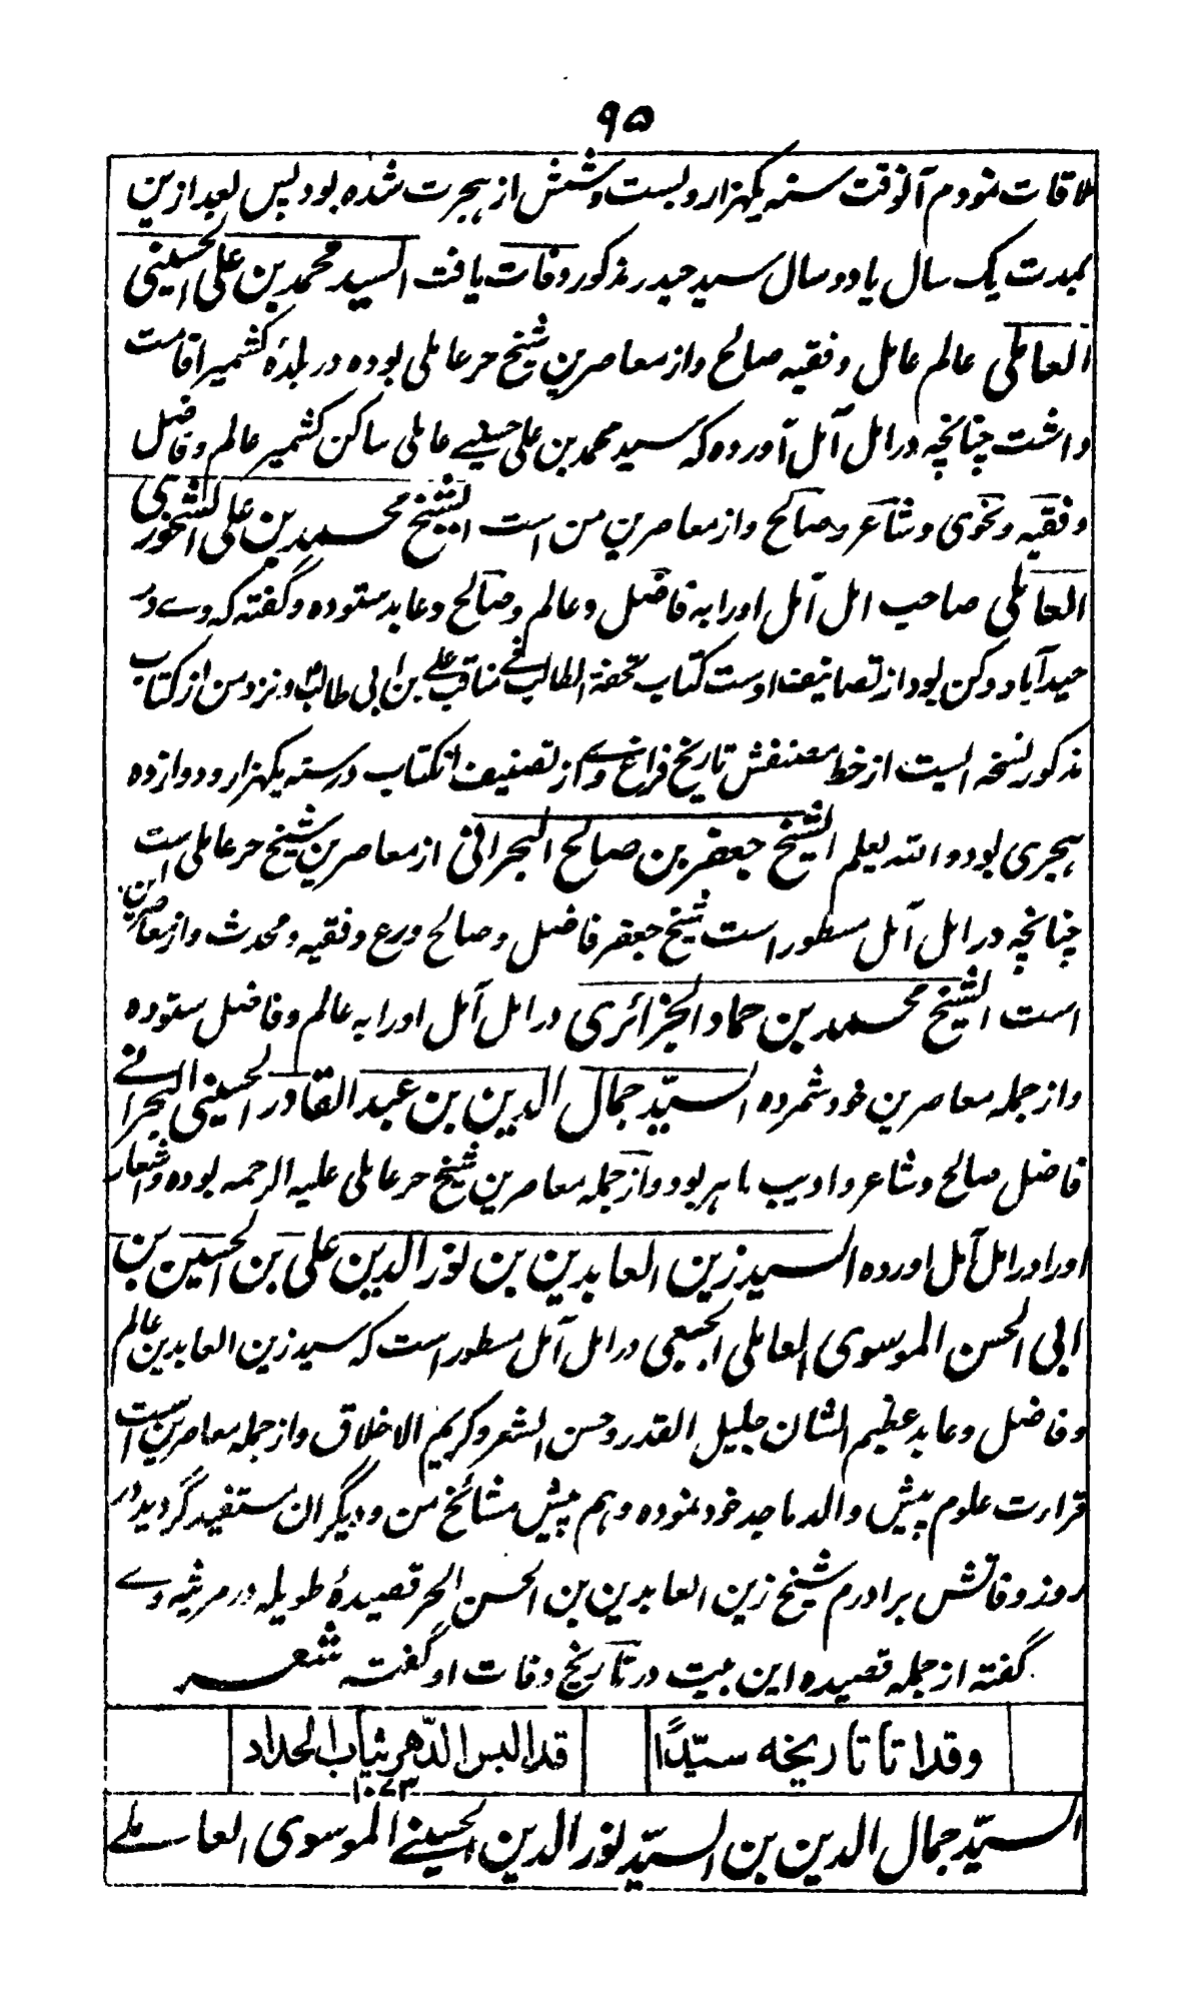 ۹۵
ملاقات نمودم آنوقت سنہ یکہزار و بست و شش از ہجرت شدہ بود پس بعد ازین
بمدت یک سال یا دو سال سید حیدر مذکور وفات یافت السید محمد بن علی الحسینی
العاملی عالم عامل و فقیہ صالح و از معاصرین شیخ حر عاملی بودہ در بلدۂ کشمیر اقامت
داشت چنانچہ در امل آمل آوردہ کہ سید محمد بن علی حسینے عاملی ساکن کشمیر عالم و فاضل
و فقیہ و نحوی و شاعر و صالح و از معاصرین من است الشیخ محمد بن علی الشحوری
العاملی صاحب امل آمل اورا بہ فاضل و عالم و صالح و عابد ستودہ و گفتہ کہ وے در
حیدآباد دکن بود از تصانیف اوست کتاب تحفة الطالب فے مناقب علے بن ابی طالبؑ و نزد من از کتاب
مذکور نسخہ ایست از خط مصنفش تاریخ فراغ وے از تصنیف انکتاب در سنہ یکہزار و دوازدہ
ہجری بود و اللہ یعلم الشیخ جعفر بن صالح البحرانی از معاصرین شیخ حر عاملی است
چنانچہ در امل آمل مسطور است شیخ جعفر فاضل و صالح و ورع و فقیہ و محدث و از معاصرین
است الشیخ محمد بن حماد الجزائری در امل آمل اورا بہ عالم و فاضل ستودہ
و از جملہ معاصرین خود شمردہ السیّد جمال الدین بن عبد القادر الحسینی البحرانے
فاضل صالح و شاعر و ادیب ماہر بود و از جملہ معاصرین شیخ حر عاملی علیہ الرحمہ بودہ و اشعار
اورا در امل آمل اوردہ السید زین العابدین بن نور الدین علی بن الحسین بن
ابی الحسن الموسوی العاملی الجبعی در امل آمل مسطور است کہ سید زین العابدین عالم
و فاضل و عابد عظیم الشان جلیل القدر و حسن الشعر و کریم الاخلاق و از جملہ معاصرین است
قراءت علوم پیش والد ماجد خود نمودہ و ہم پیش مشائخ من و دیگران مستفید گردید در
روز وفاتش برادرم شیخ زین العابدین بن الحسن الحر قصیدۂ طویلہ در مرثیہ وے
گفتہ از جملہ قصیدہ این بیت در تاریخ وفات او گفت شعر
وقد اتا تاریخه سیّدًا قد البس الدّهر ثیاب الحداد
۱۰۷۳
السیّد جمال الدین بن السیّد نور الدین الحسینے الموسوی العاملے